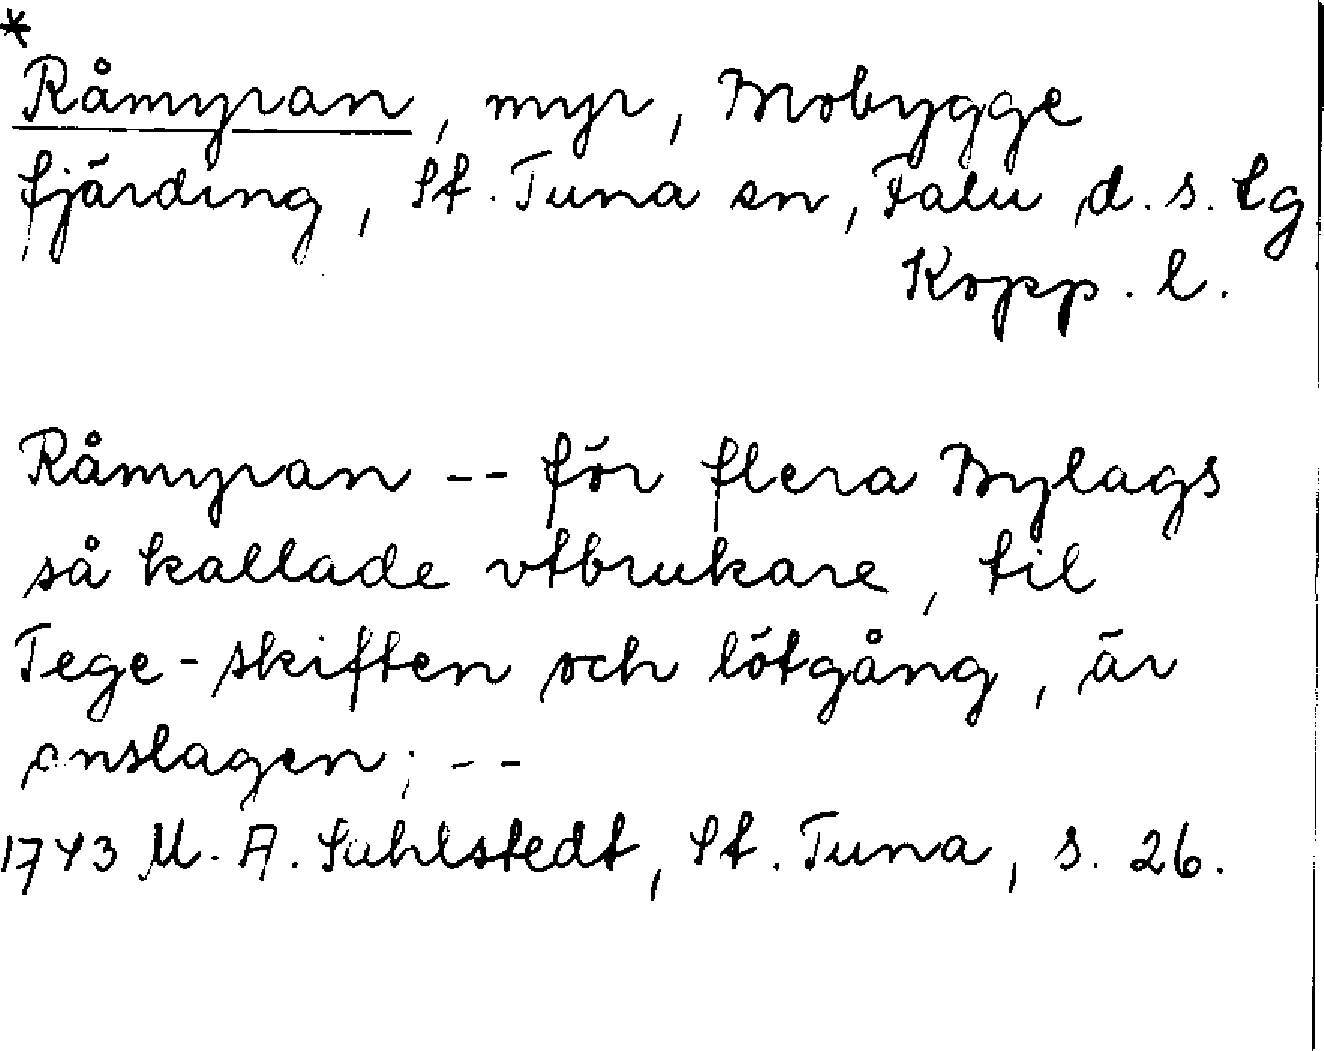 *
Råmyran, myr, Mobygge
fjärding, St. Tuna sn, Falu d. s. tg
Kopp. l.
Råmyran -- för flera Bylags
så kallade vtbrukare, til
Tege-skiften och lötgång, är
anslagen; --
1743 M. A. Sahlstedt, St. Tuna, s. 26.